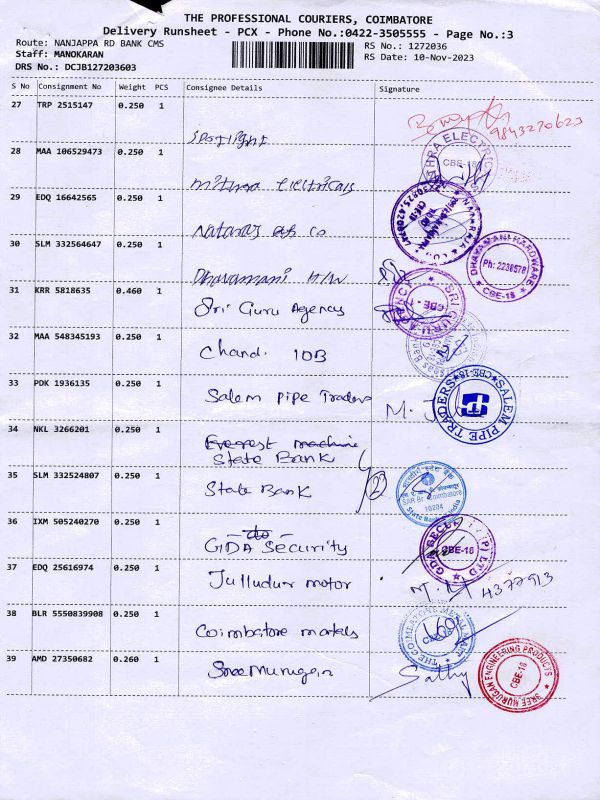 THE PROFESSIONAL COURIERS, COIMBATORE
Delivery Runsheet - PCX - Phone No.:0422-3505555 - Page No.:3
Route: NANJAPPA RD BANK CMS
RS No.: 1272036
Staff: MANOKARAN
RS Date: 10-Nov-2023
DRS No.: DCJB127203603
S No Consignment No Weight PCS Consignee Details Signature
27 TRP 2515147 0.250 1
9843270623
28 MAA 106529473 0.250 1 Mithra Electricals
CBE-18
29 EDQ 16642565 0.250 1 Nataraj & Co
30 SLM 332564647 0.250 1 Dhavamani H/W
DHAVAMANI HARDWARE
Ph: 2230578
CBE-18
31 KRR 5818635 0.460 1 Sri Guru Agency
SRI GURU AGENCY
CBE-
32 MAA 548345193 0.250 1 Chand. IOB
33 PDK 1936135 0.250 1 Salem Pipe Traders
SALEM PIPE TRADERS
CBE-18
34 NKL 3266201 0.250 1 Everest machine
State Bank
35 SLM 332524807 0.250 1 State Bank
2
SAR Br. Coimbatore
10204
State Bank of India
36 IXM 505240270 0.250 1 do
GDA Security
CBE-18
37 EDQ 25616974 0.250 1 Julludur motor M. M 4377913
38 BLR 5550839908 0.250 1 Coimbatore metals
THE COIMBATORE METAL MART
39 AMD 27350682 0.260 1 Sree Murugan Sathy
SREE MURUGAN ENGINEERING PRODUCTS
CBE-18